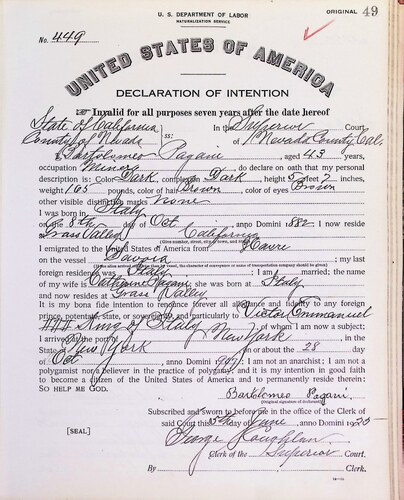 U. S. DEPARTMENT OF LABOR
NATURALIZATION SERVICE
ORIGINAL 49
No. 449
UNITED STATES OF AMERICA
DECLARATION OF INTENTION
Invalid for all purposes seven years after the date hereof
State of California In the Superior Court
County of Nevada ss: of Nevada County Cal.
I, Bartolomeo Pagani, aged 43 years,
occupation Miner, do declare on oath that my personal
description is: Color Dark, complexion Dark, height 5 feet 7 inches,
weight 165 pounds, color of hair Brown, color of eyes Brown
other visible distinctive marks none
I was born in Italy
on the 8th day of Oct, anno Domini 1882; I now reside
at Grass Valley California
(Give number, street, city, town, and
I emigrated to the United States of America from Havre
on the vessel Savoia; my last
foreign residence was Italy; I am married; the name
of my wife is Catharine Pagani; she was born at Italy
and now resides at Grass Valley
It is my bona fide intention to renounce forever all allegiance and fidelity to any foreign
prince, potentate, state, or sovereignty, and particularly to Victor Emmanuel
III King of Italy, of whom I am now a subject;
I arrived at the port of New York, in the
State of New York on or about the 28 day
of Oct, anno Domini; I am not an anarchist; I am not a
polygamist nor a believer in the practice of polygamy; and it is my intention in good faith
to become a citizen of the United States of America and to permanently reside therein:
SO HELP ME GOD.
Bartolomeo Pagani
(Original signature of declarant)
Subscribed and sworn to before me in the office of the Clerk of
[SEAL] said Court this 15th day of June, anno Domini 1925
George
Clerk of the Superior Court.
By , Clerk.